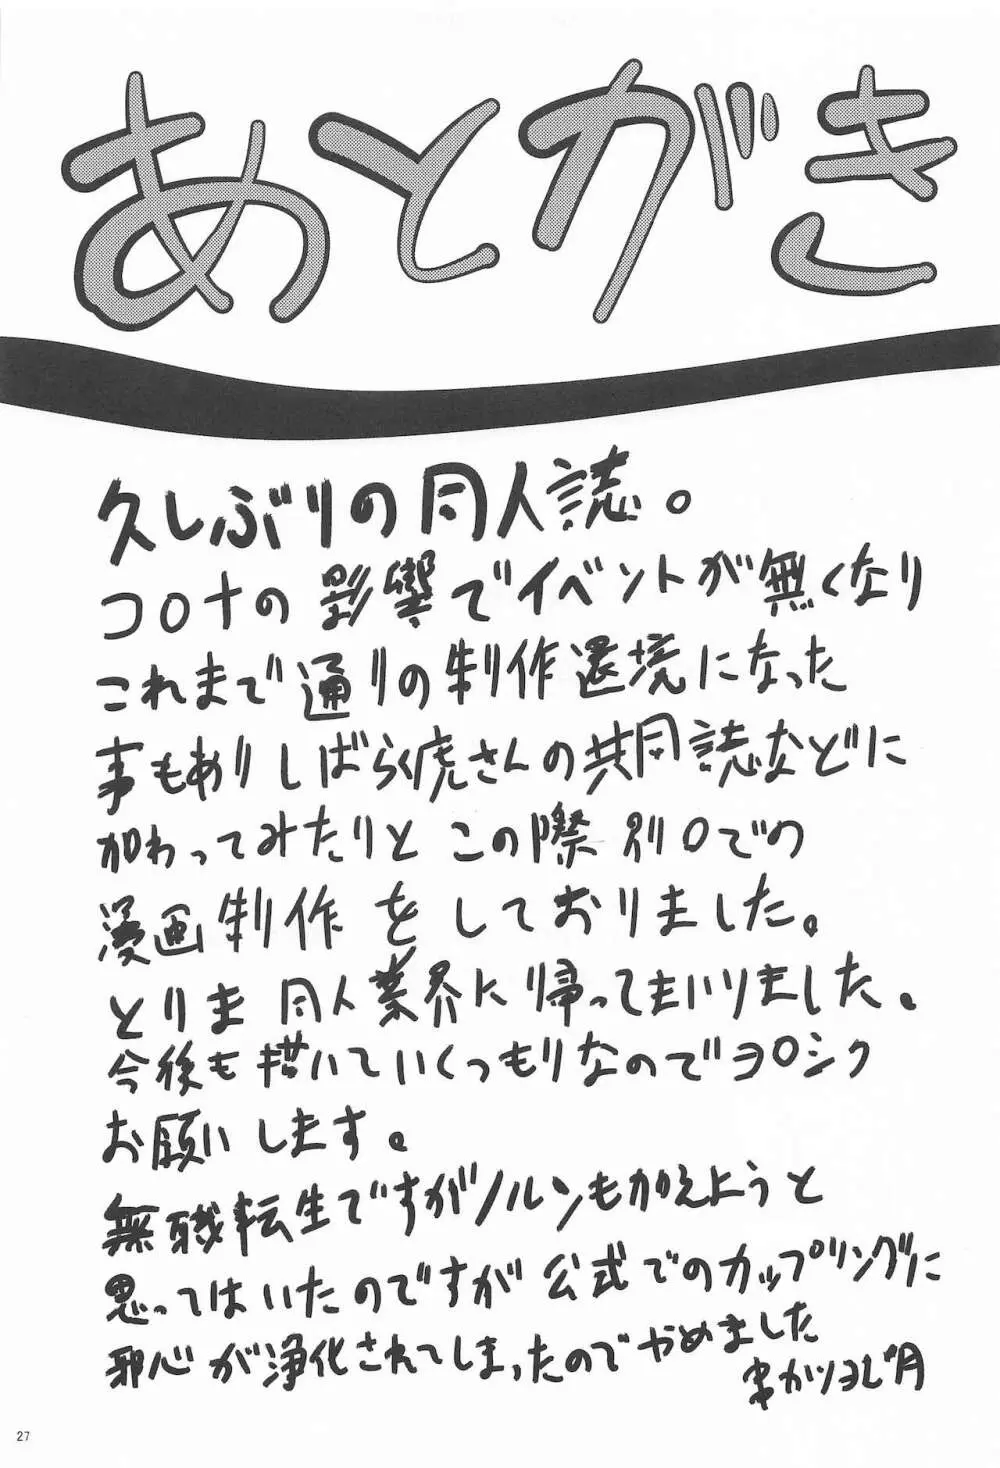 あとがき
久しぶりの同人誌。
コロナの影響でイベントが無くなり
これまで通りの制作環境になった
事もありしばらく虎さんの共同誌などに
加わってみたりと この際 別口での
漫画制作 をしておりました。
とりま 同人業界に帰ってまいりました。
今後も描いていくつもりなのでヨロシク
お願いします。
無職転生ですがノルンも加えようと
思ってはいたのですが 公式でのカップリングに
邪心が浄化されてしまったのでやめました
串カツヨじ月
27